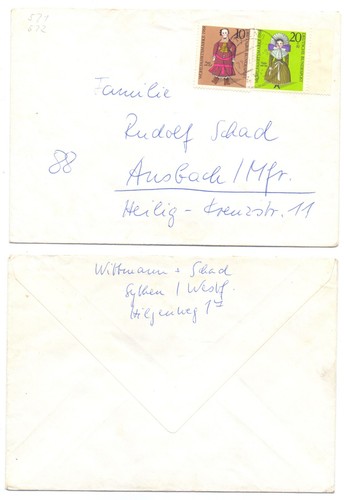 571
672
10
20
DEUTSCHE BUNDESPOST
Familie
Rudolf Schad
88 Ansbach / Mfr.
Heilig-Kreuzstr. 11
Wittmann + Schad
Sythen / Westf.
Hilgenweg